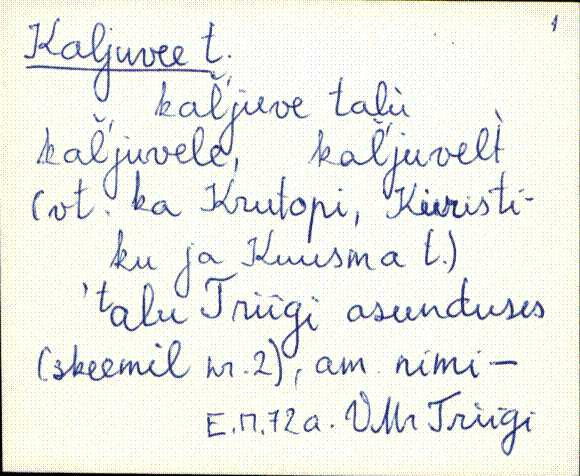 1
Kaljuvee t.
kal̆'juve talù
kal̆'juvele, kal̆'juvelt̀
(vt. ka Krutopi, Kuristi-
ku ja Kuusma t.)
'talu Triigi asunduses
(skeemil nr. 2), am. nimi —
E.П.72a. VMr Triigi